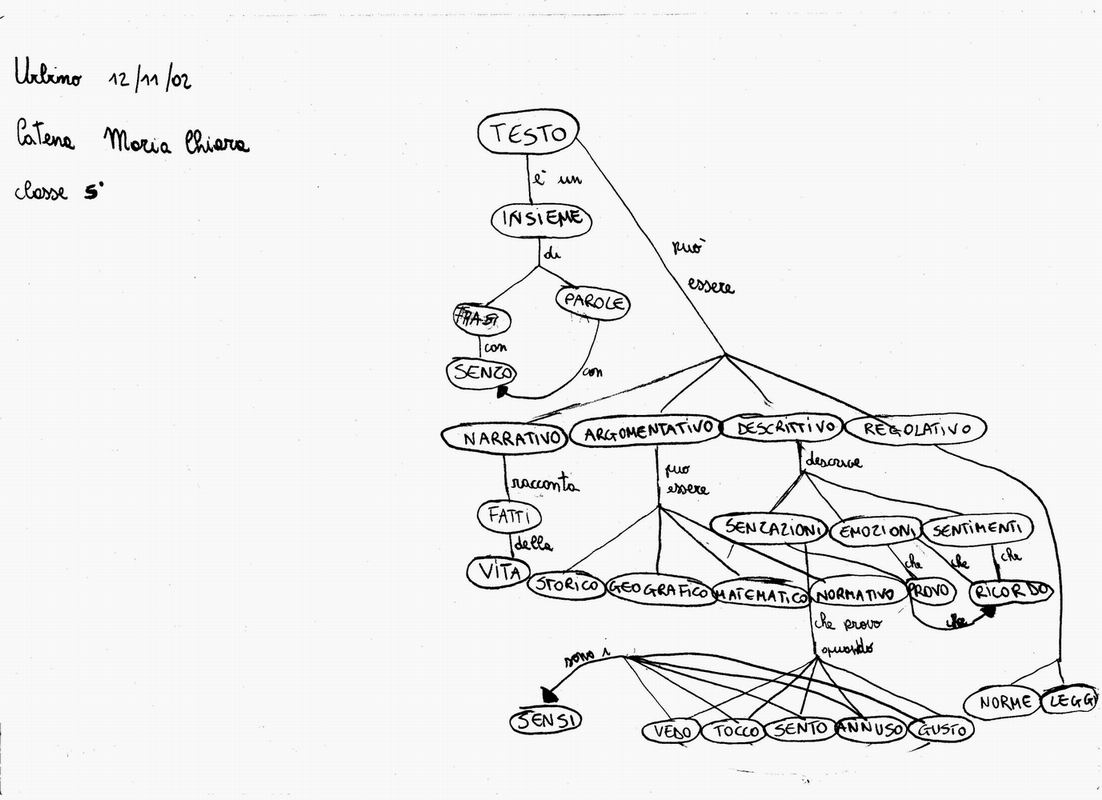 Urbino 12/11/02
Catena Maria Chiara
classe 5°
TESTO
è un
INSIEME
di
può
essere
FRASI
PAROLE
con
con
SENZO
NARRATIVO ARGOMENTATIVO DESCRITTIVO REGOLATIVO
racconta
può
essere
descrive
FATTI
della
VITA
SENZAZIONI EMOZIONI SENTIMENTI
che che che
STORICO GEOGRAFICO MATEMATICO NORMATIVO PROVO RICORDO
che
che provo
quando
sono i
SENSI
NORME LEGGI
VEDO TOCCO SENTO ANNUSO GUSTO